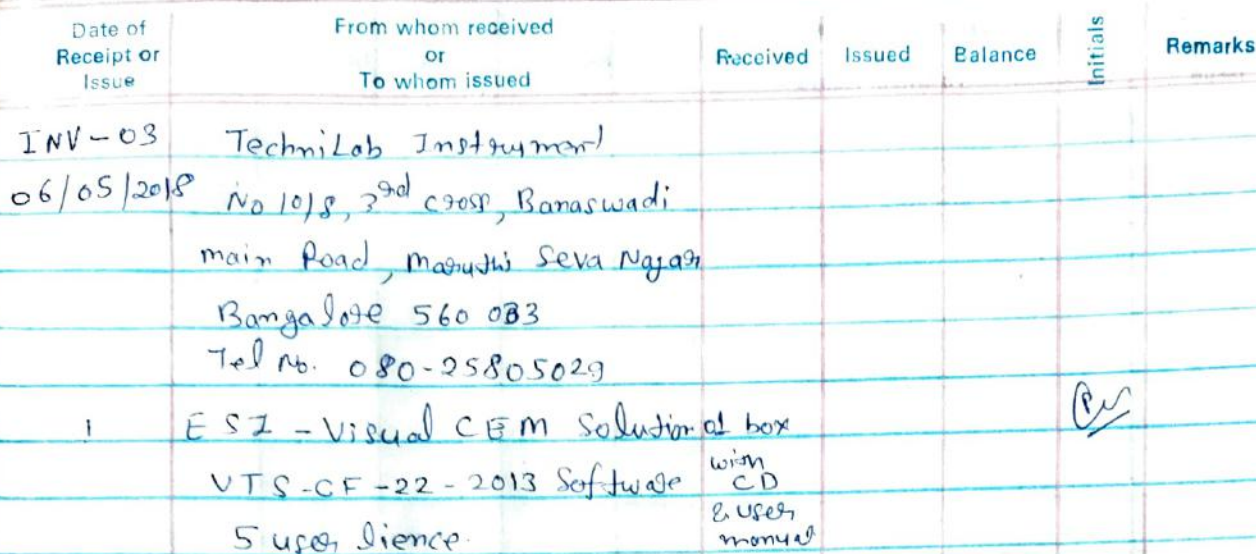 Date of Receipt or Issue
From whom received or To whom issued
Received
Issued
Balance
Initials
Remarks
INV-03 TechniLab Instrument
06/05/2018 No 10/8, 3rd cross, Banaswadi
main Road, Maruthi Seva Nagar
Bangalore 560 033
Tel No. 080-25805029
1 ESI - Visual CEM Solution 01 box
VTS-CF-22-2013 Software with CD
5 user lience. & user manual